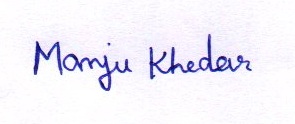 Manju Khedar